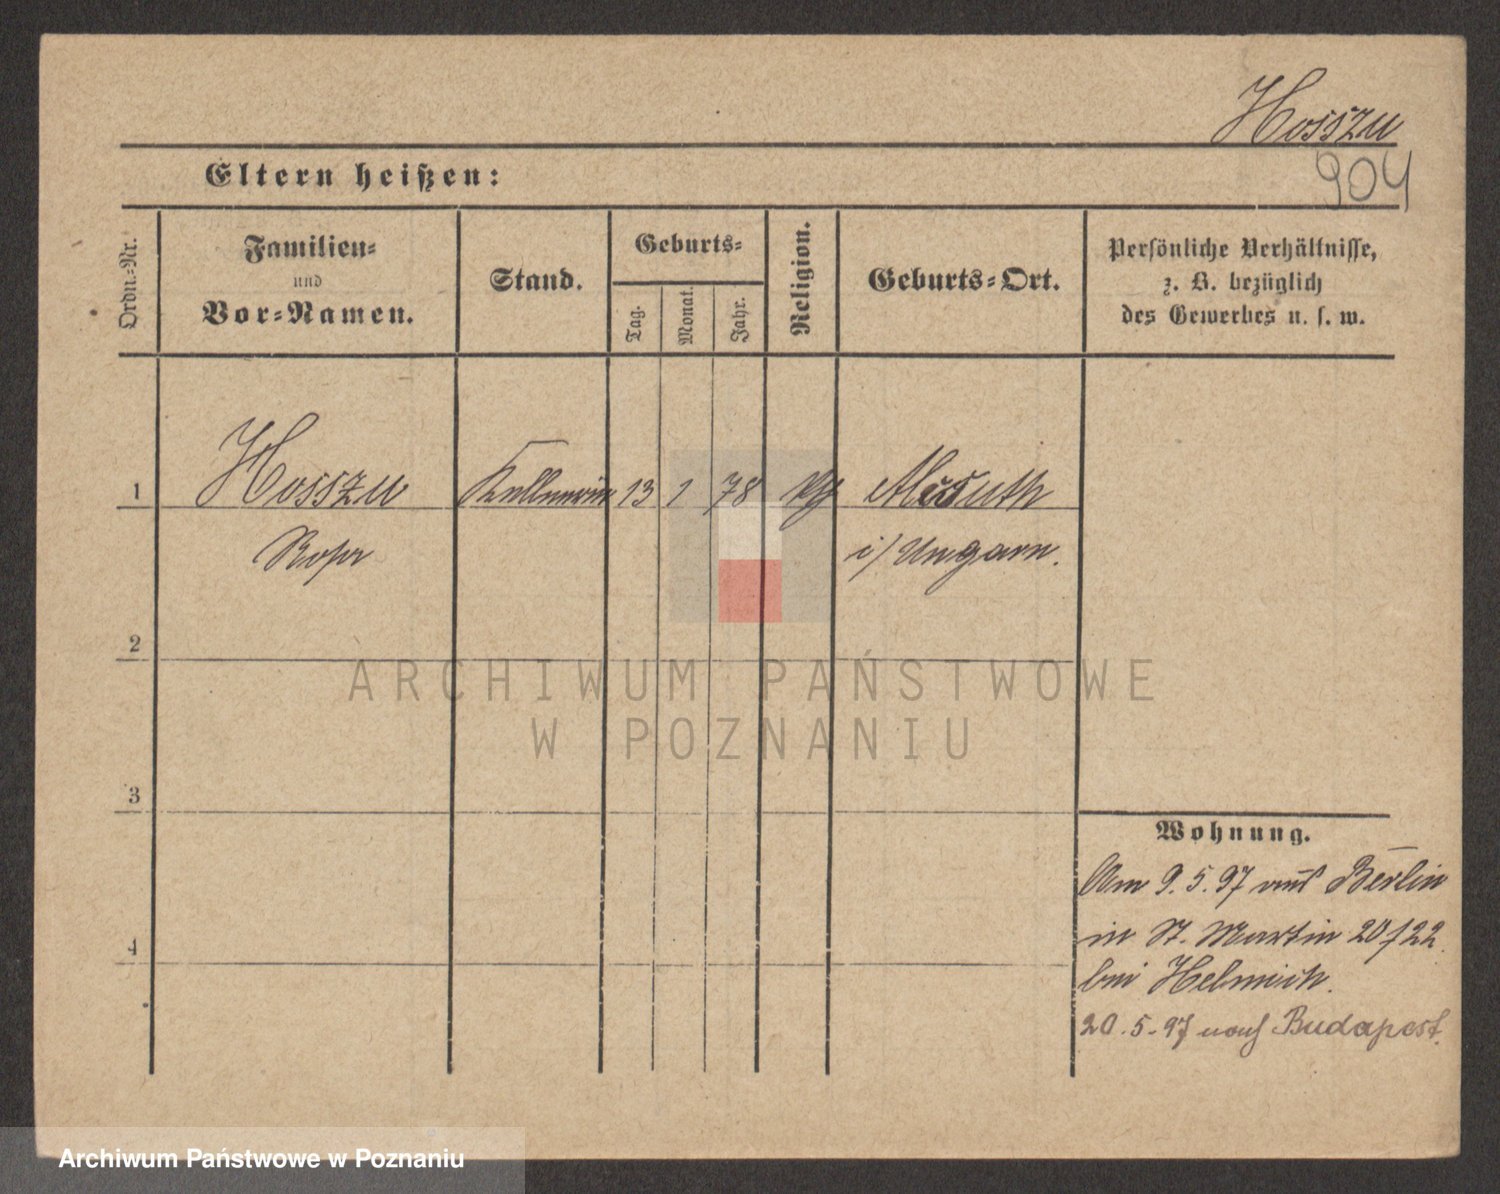 Hosszu
904
Eltern heißen:
Ordn.-Nr.
Familien-
und
Vor-Namen.
Stand.
Geburts-
Tag.
Monat.
Jahr.
Religion.
Geburts-Ort.
Persönliche Verhältnisse,
z. B. bezüglich
des Gewerbes u. s. w.
1
Hosszu
Kellnerin
13
1
78
Rosa
i/ Ungarn.
2
3
4
Wohnung.
Am 9.5.97 aus Berlin
in St. Martin 20/22.
bei Helmich.
20.5.97 nach Budapest.
ARCHIWUM PAŃSTWOWE
W POZNANIU
Archiwum Państwowe w Poznaniu